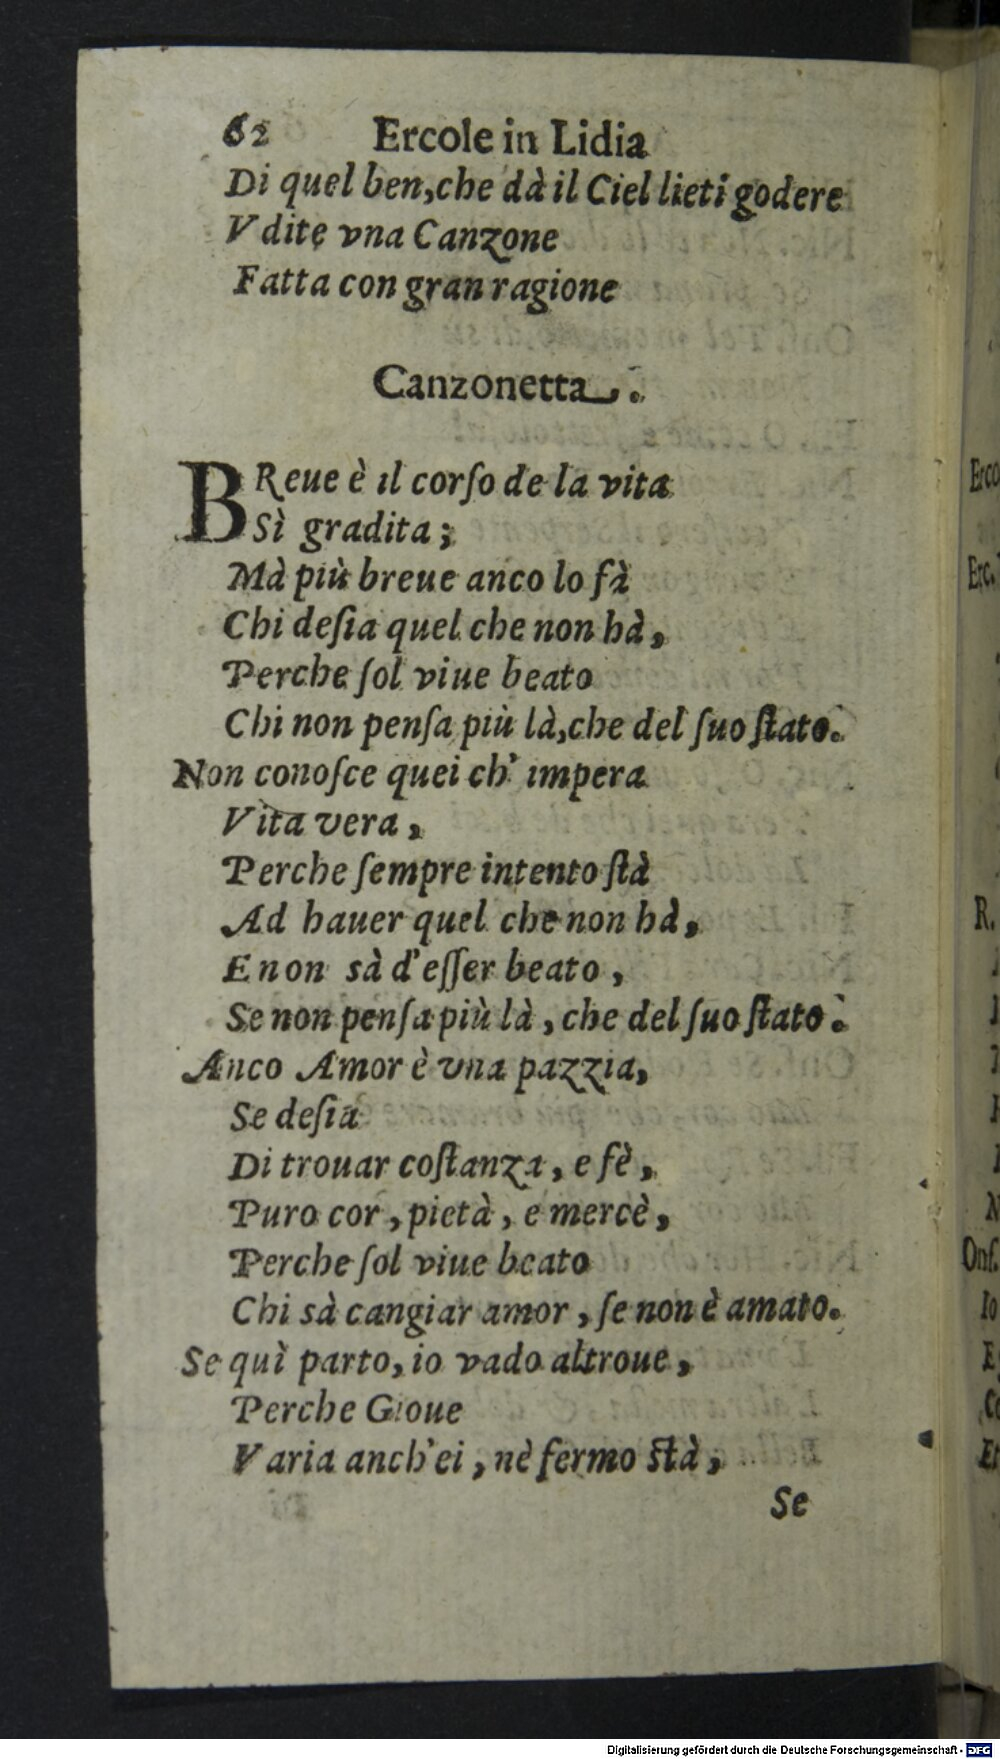 62 Ercole in Lidia
Di quel ben, che dà il Ciel lieti godere
Vdite vna Canzone
Fatta con gran ragione
Canzonetta.
BReue è il corſo de la vita
Sì gradita;
Mà più breue anco lo fà
Chi deſia quel che non hà,
Perche ſol viue beato
Chi non penſa più là, che del ſuo ſtato.
Non conoſce quei ch' impera
Vita vera,
Perche ſempre intento ſtà
Ad hauer quel che non hà,
E non sà d'eſſer beato,
Se non penſa più là, che del ſuo ſtato.
Anco Amor è vna pazzia,
Se deſia
Di trouar coſtanza, e fè,
Puro cor, pietà, e mercè,
Perche ſol viue beato
Chi sà cangiar amor, ſe non è amato.
Se quì parto, io vado altroue,
Perche Gioue
Varia anch'ei, nè fermo ſtà,
Se
Erco
Erc.
R.
Onſ.
Io
Digitalisierung gefördert durch die Deutsche Forschungsgemeinschaft - DFG